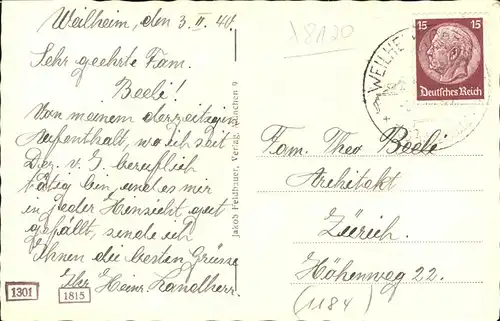 Weilheim, den 3. II. 40.
Sehr geehrte Fam.
Beeli!
Von meinem derzeitigen
Aufenthalt, wo ich seit
Dez. v. J. beruflich
tätig bin, und es mir
in jeder Hinsicht gut
gefällt, sende ich
Ihnen die besten Grüsse
Ihr Heinr. Landherr.
1301
1815
Jakob Feldbauer, Verlag, München 9
18120
WEILHE
15 15
Deutsches Reich
Fam. Theo Beeli
Architekt
Zürich.
Höhenweg 22.
(1184)